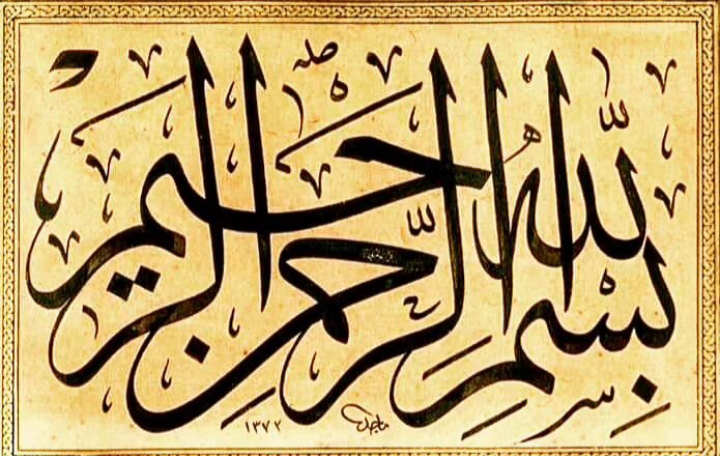 بِسْمِ اللّٰهِ الرَّحْمٰنِ الرَّحِيمِ
ماجد
١٣٧٢